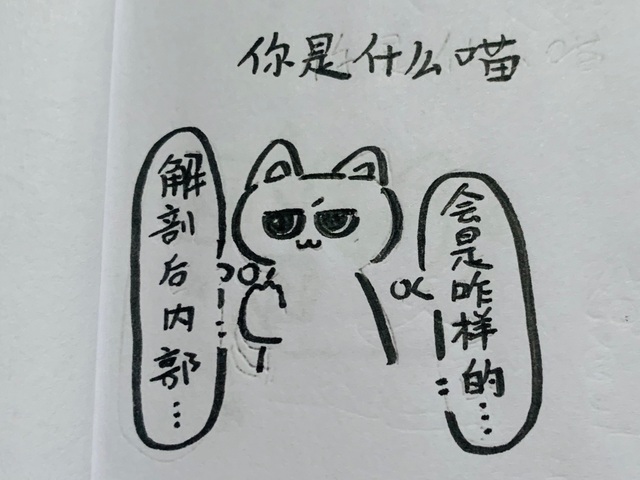 你是什么喵
解剖后内部…
会是咋样的…